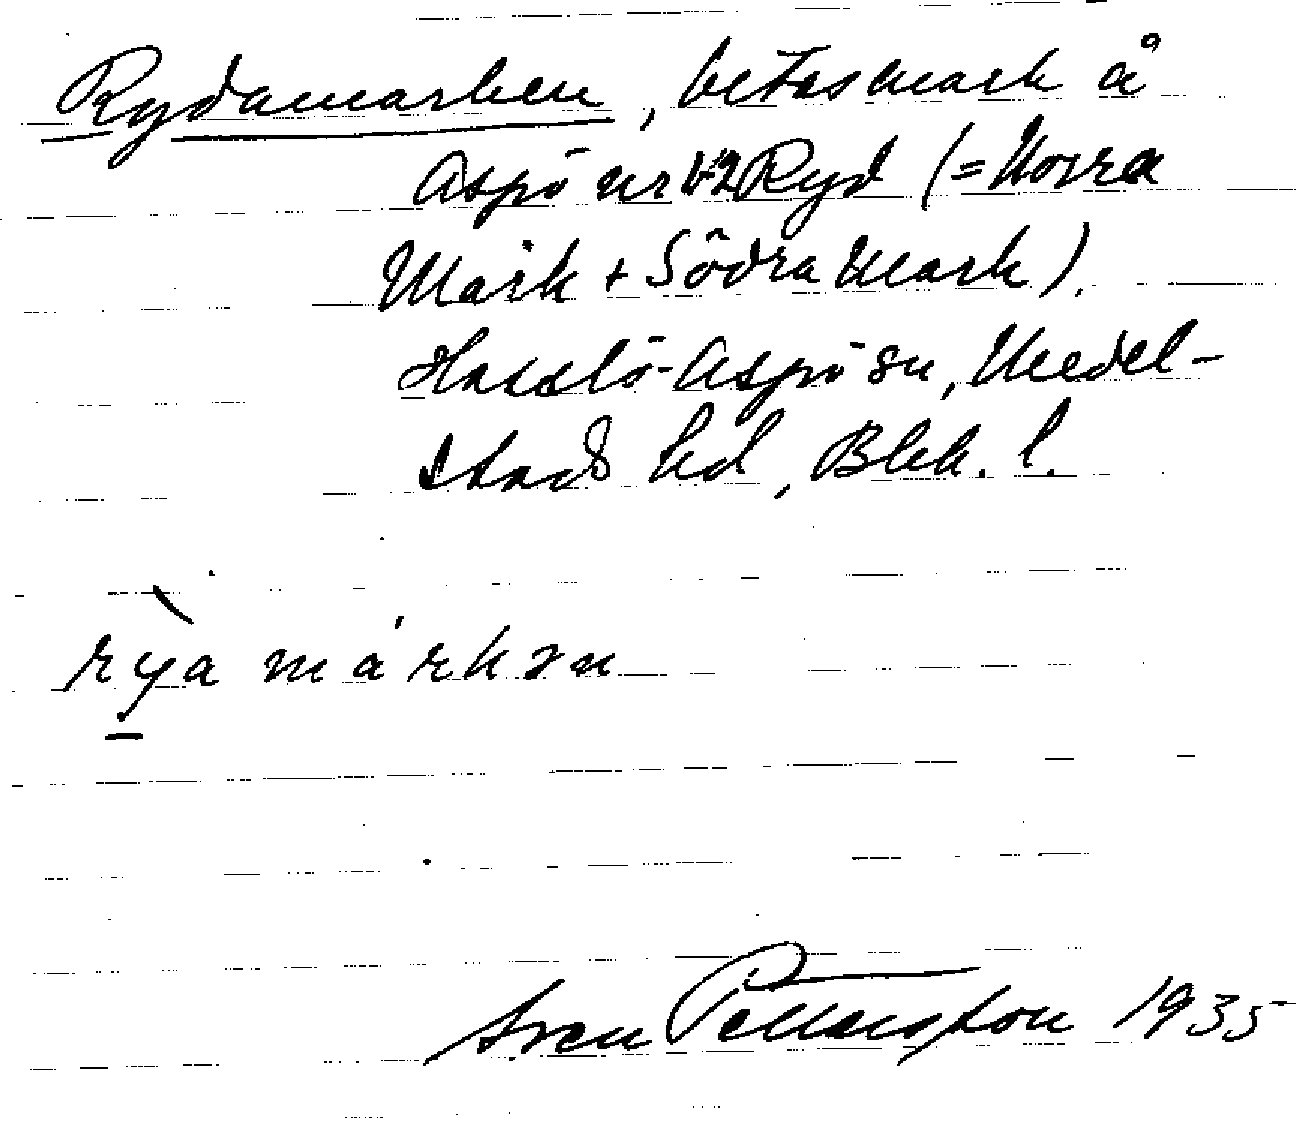 Rydamarken, betasmark å
Aspö nr 1-2 Ryd (= Norra
Mark + Södra Mark).
Hasslö-Aspö sn, Medel-
stads hd, Blek. l.
rya markən
Sven 1935